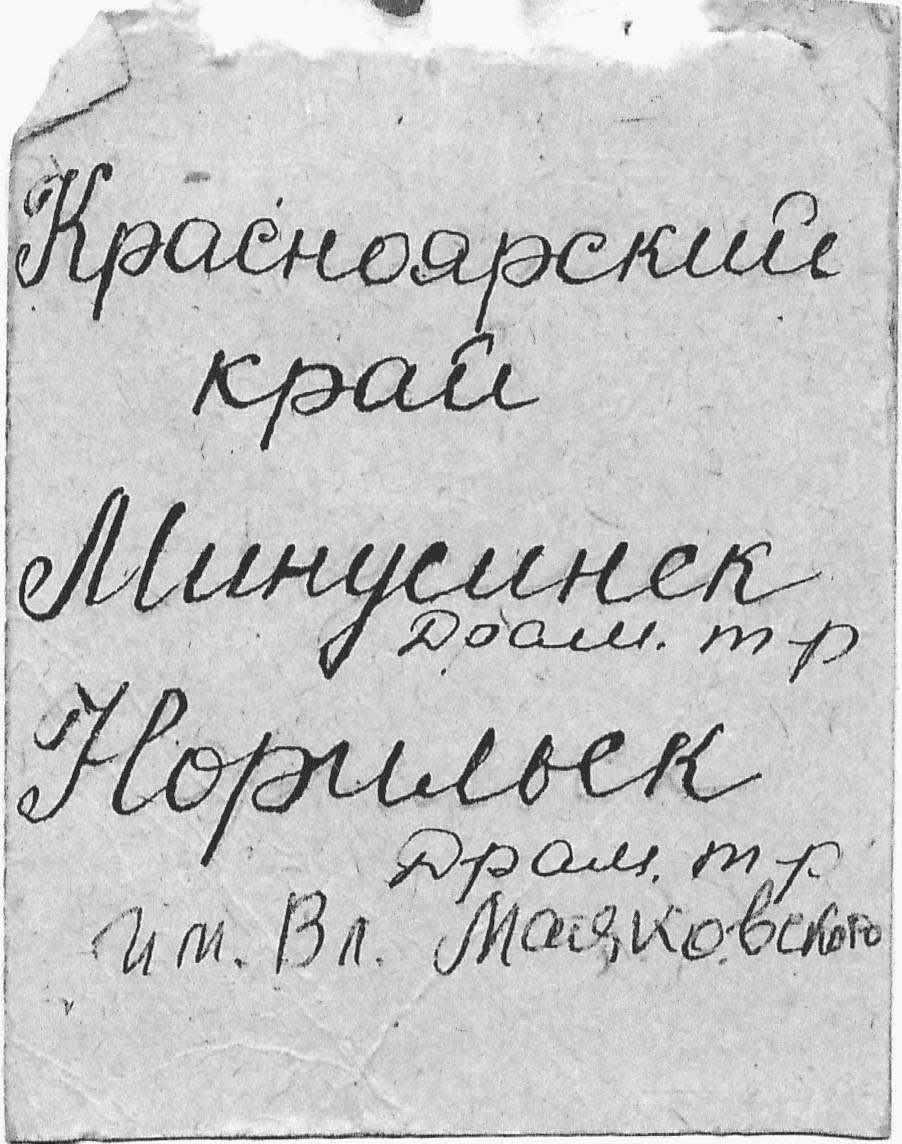 Красноярский
край
Минусинск
Драм. т-р
Норильск
Драм. т-р
им. Вл. Маяковского